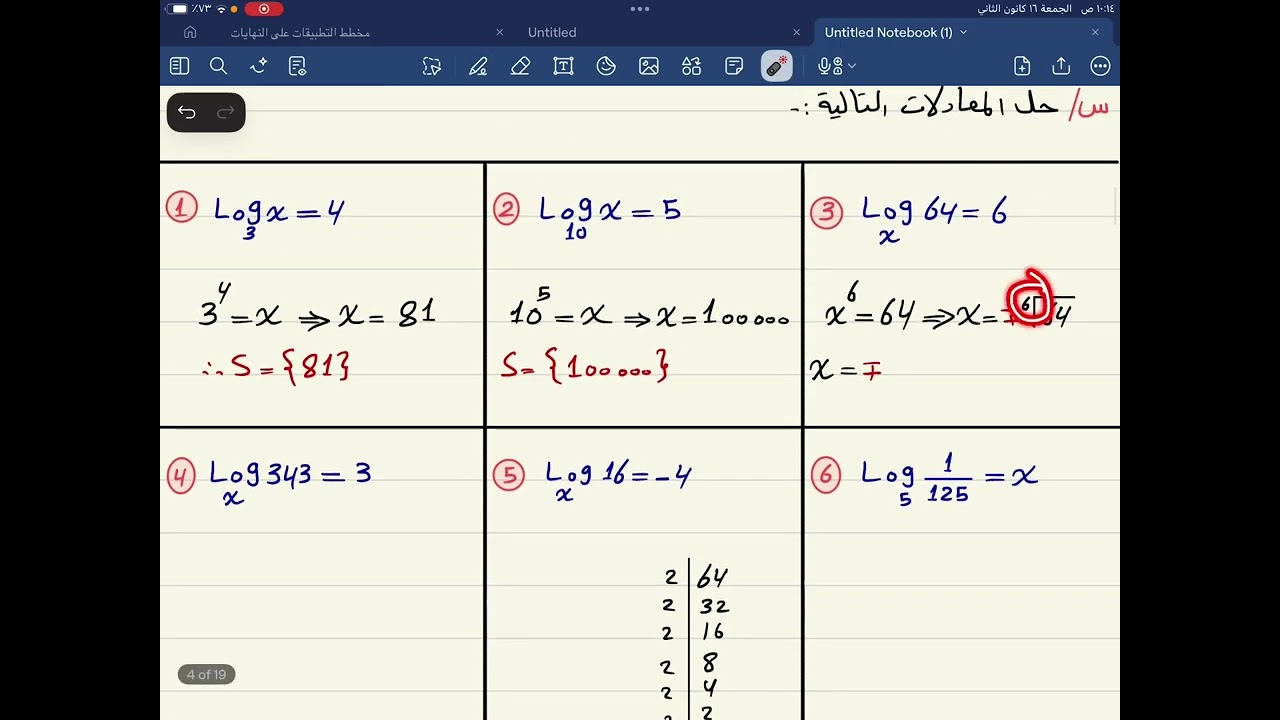 ١٠:١٤ ص الجمعة ١٦ كانون الثاني
٧٣٪
مخطط التطبيقات على النهايات
Untitled
Untitled Notebook (1)
س/ حل المعادلات التالية :-
① Log₃ x = 4
3⁴ = x ⇒ x = 81
∴ S = {81}
② Log₁₀ x = 5
10⁵ = x ⇒ x = 100000
S = {100000}
③ Logₓ 64 = 6
x⁶ = 64 ⇒ x = ∓ ⁶√64
x = ∓
④ Logₓ 343 = 3
⑤ Logₓ 16 = -4
2 | 64
2 | 32
2 | 16
2 | 8
2 | 4
2 | 2
⑥ Log₅ 1/125 = x
4 of 19